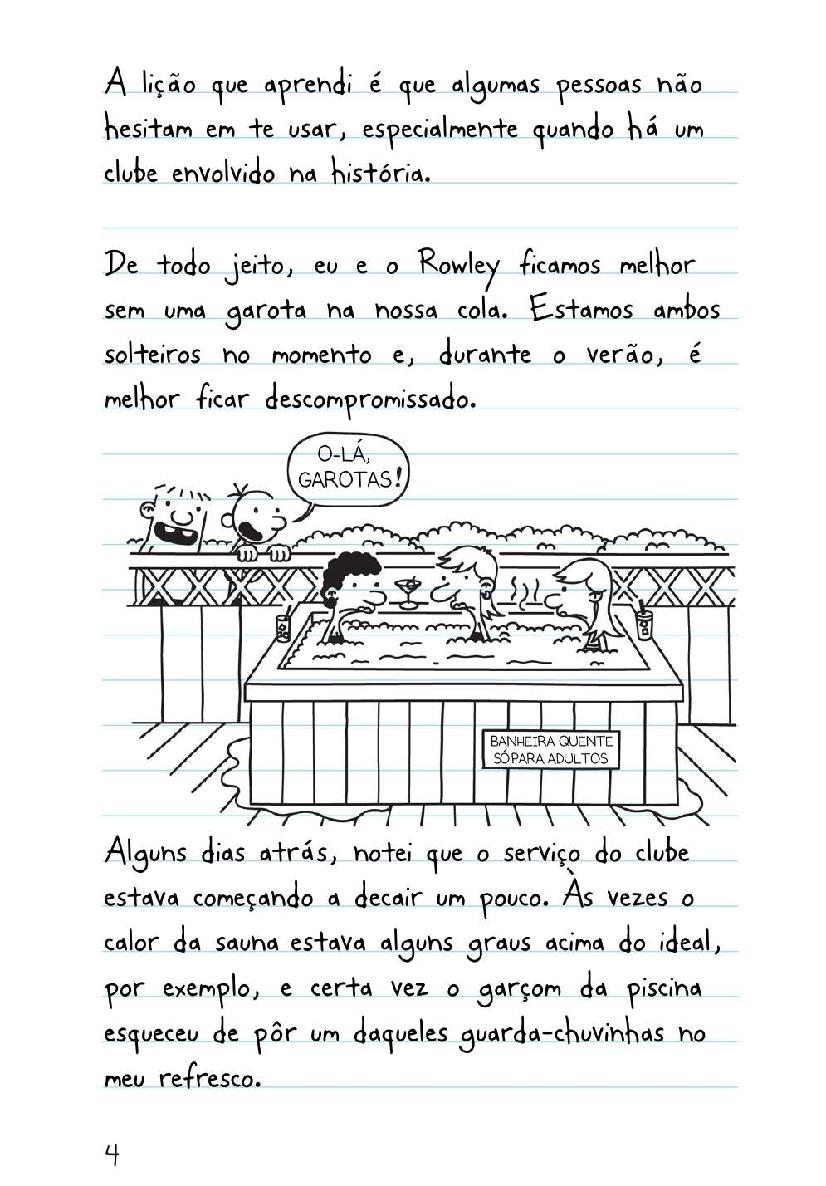 A lição que aprendi é que algumas pessoas não
hesitam em te usar, especialmente quando há um
clube envolvido na história.
De todo jeito, eu e o Rowley ficamos melhor
sem uma garota na nossa cola. Estamos ambos
solteiros no momento e, durante o verão, é
melhor ficar descompromissado.
O-LÁ,
GAROTAS!
BANHEIRA QUENTE
SÓ PARA ADULTOS
Alguns dias atrás, notei que o serviço do clube
estava começando a decair um pouco. Às vezes o
calor da sauna estava alguns graus acima do ideal,
por exemplo, e certa vez o garçom da piscina
esqueceu de pôr um daqueles guarda-chuvinhas no
meu refresco.
4